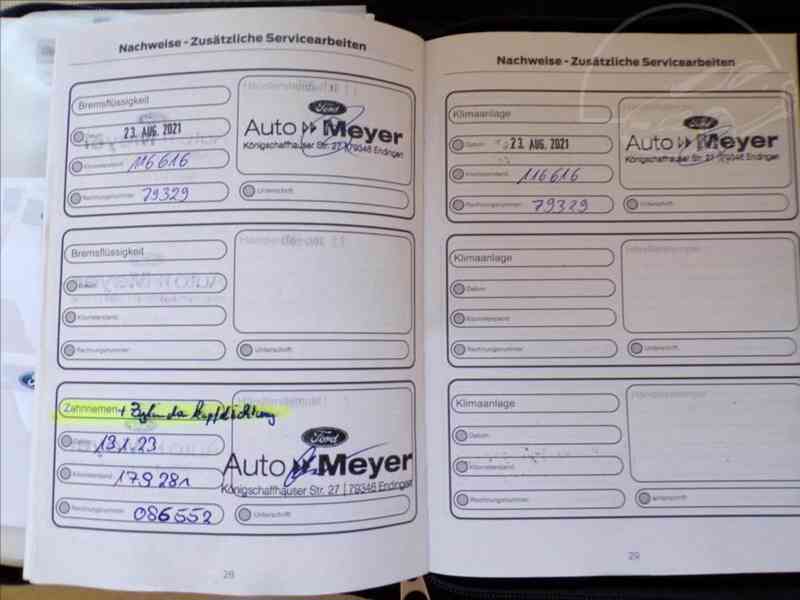 Nachweise - Zusätzliche Servicearbeiten
Bremsflüssigkeit
Datum 23. AUG. 2021
Kilometerstand 116616
Rechnungsnummer 79329
Ford
Auto Meyer
Königschaffhauser Str. 27 | 79346 Endingen
Unterschrift
Bremsflüssigkeit
Datum
Kilometerstand
Rechnungsnummer
Unterschrift
Zahnriemen + Zylinderkopfdichtung
Datum 13.1.23
Kilometerstand 179281
Rechnungsnummer 086552
Händlerstempel
Ford
Auto Meyer
Königschaffhauser Str. 27 | 79346 Endingen
Unterschrift
28
Nachweise - Zusätzliche Servicearbeiten
Klimaanlage
Datum 23. AUG. 2021
Kilometerstand 116616
Rechnungsnummer 79329
Ford
Auto Meyer
Königschaffhauser Str. 27 | 79346 Endingen
Unterschrift
Klimaanlage
Datum
Kilometerstand
Rechnungsnummer
Unterschrift
Klimaanlage
Datum
Kilometerstand
Rechnungsnummer
Unterschrift
29